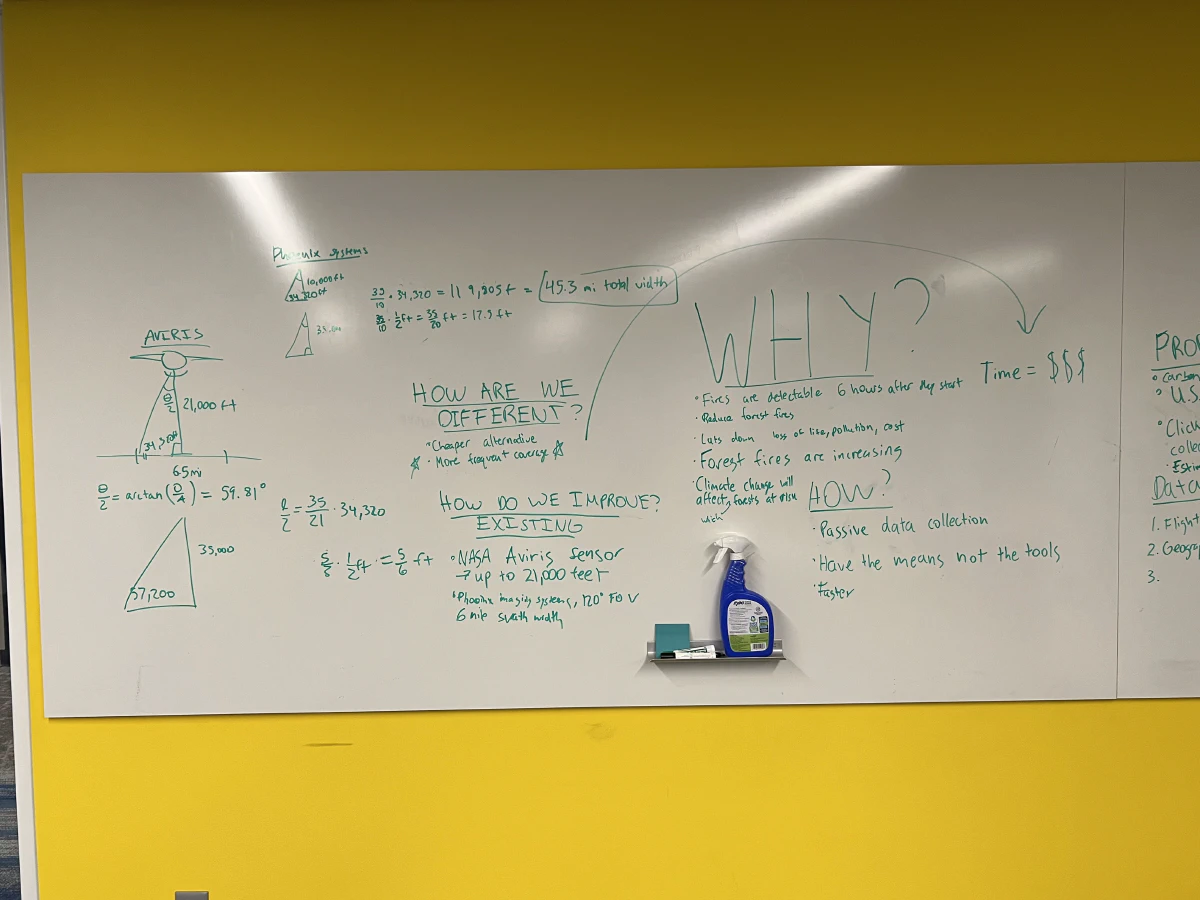 Phoenix systems
10,000 ft
34,320 ft
35/10 · 34,320 = 119,805 ft = 45.3 mi total width
35/10 · 1/2 ft = 35/20 ft = 17.5 ft
AVIRIS
θ/2
21,000 ft
65 mi
θ/2 = arctan(O/A) = 59.81°
35,000
57,200
ℓ/2 = 35/21 · 34,320
· 1/2 ft · = 5/6 ft
HOW ARE WE
DIFFERENT?
Cheaper alternative
More frequent coverage
HOW DO WE IMPROVE?
EXISTING
NASA Aviris sensor
→ up to 21,000 feet
Phoenix imaging systems, 120° FOV
6 mile swath width
WHY?
Fires are detectable 6 hours after they start
Reduce forest fires
Cuts down loss of life, pollution, cost
Forest fires are increasing
Climate change will
affect forests at risk
which
Time = $$$
HOW?
Passive data collection
Have the means not the tools
Faster
EXPO
Carbon
U.S.
Click
Data
1. Flight
2. Geog
3.